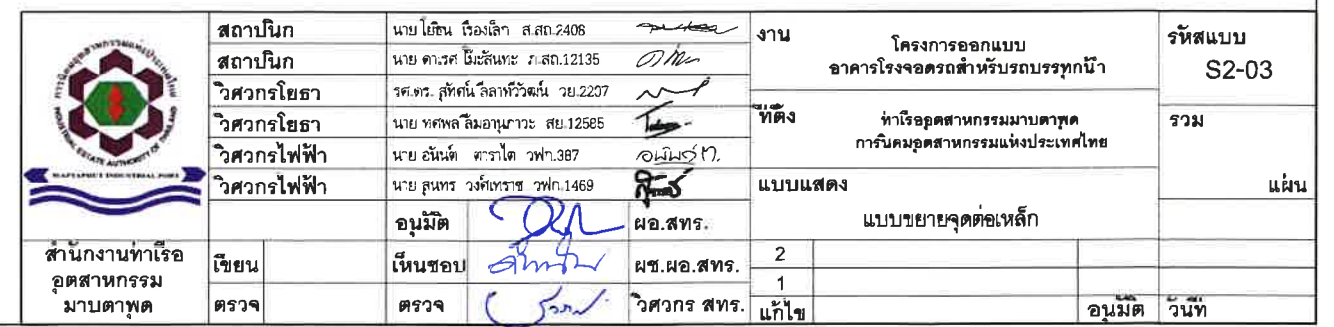 การนิคมอุตสาหกรรมแห่งประเทศไทย
INDUSTRIAL ESTATE AUTHORITY OF THAILAND
MAPTAPHUT INDUSTRIAL PORT
สำนักงานท่าเรือ
อุตสาหกรรม
มาบตาพุด
สถาปนิก นาย โยธิน เรืองเล็ก ส.สถ.2408
สถาปนิก นาย ภ.สถ.12135
วิศวกรโยธา รศ.ดร. สุทัศน์ ลีลาทวีวัฒน์ วย.2207
วิศวกรโยธา นาย ทศพล ลิมอานุภาวะ สย.12585
วิศวกรไฟฟ้า นาย อนันต์ ดาราไต วฟก.387
วิศวกรไฟฟ้า นาย สุนทร วงศ์เทราช วฟก.1469
อนุมัติ ผอ.สทร.
เขียน เห็นชอบ ผช.ผอ.สทร.
ตรวจ ตรวจ วิศวกร สทร.
งาน
โครงการออกแบบ
อาคารโรงจอดรถสำหรับรถบรรทุกน้ำ
ที่ตั้ง
ท่าเรืออุตสาหกรรมมาบตาพุด
การนิคมอุตสาหกรรมแห่งประเทศไทย
แบบแสดง
แบบขยายจุดต่อเหล็ก
2
1
แก้ไข อนุมัติ วันที่
รหัสแบบ
S2-03
รวม
แผ่น